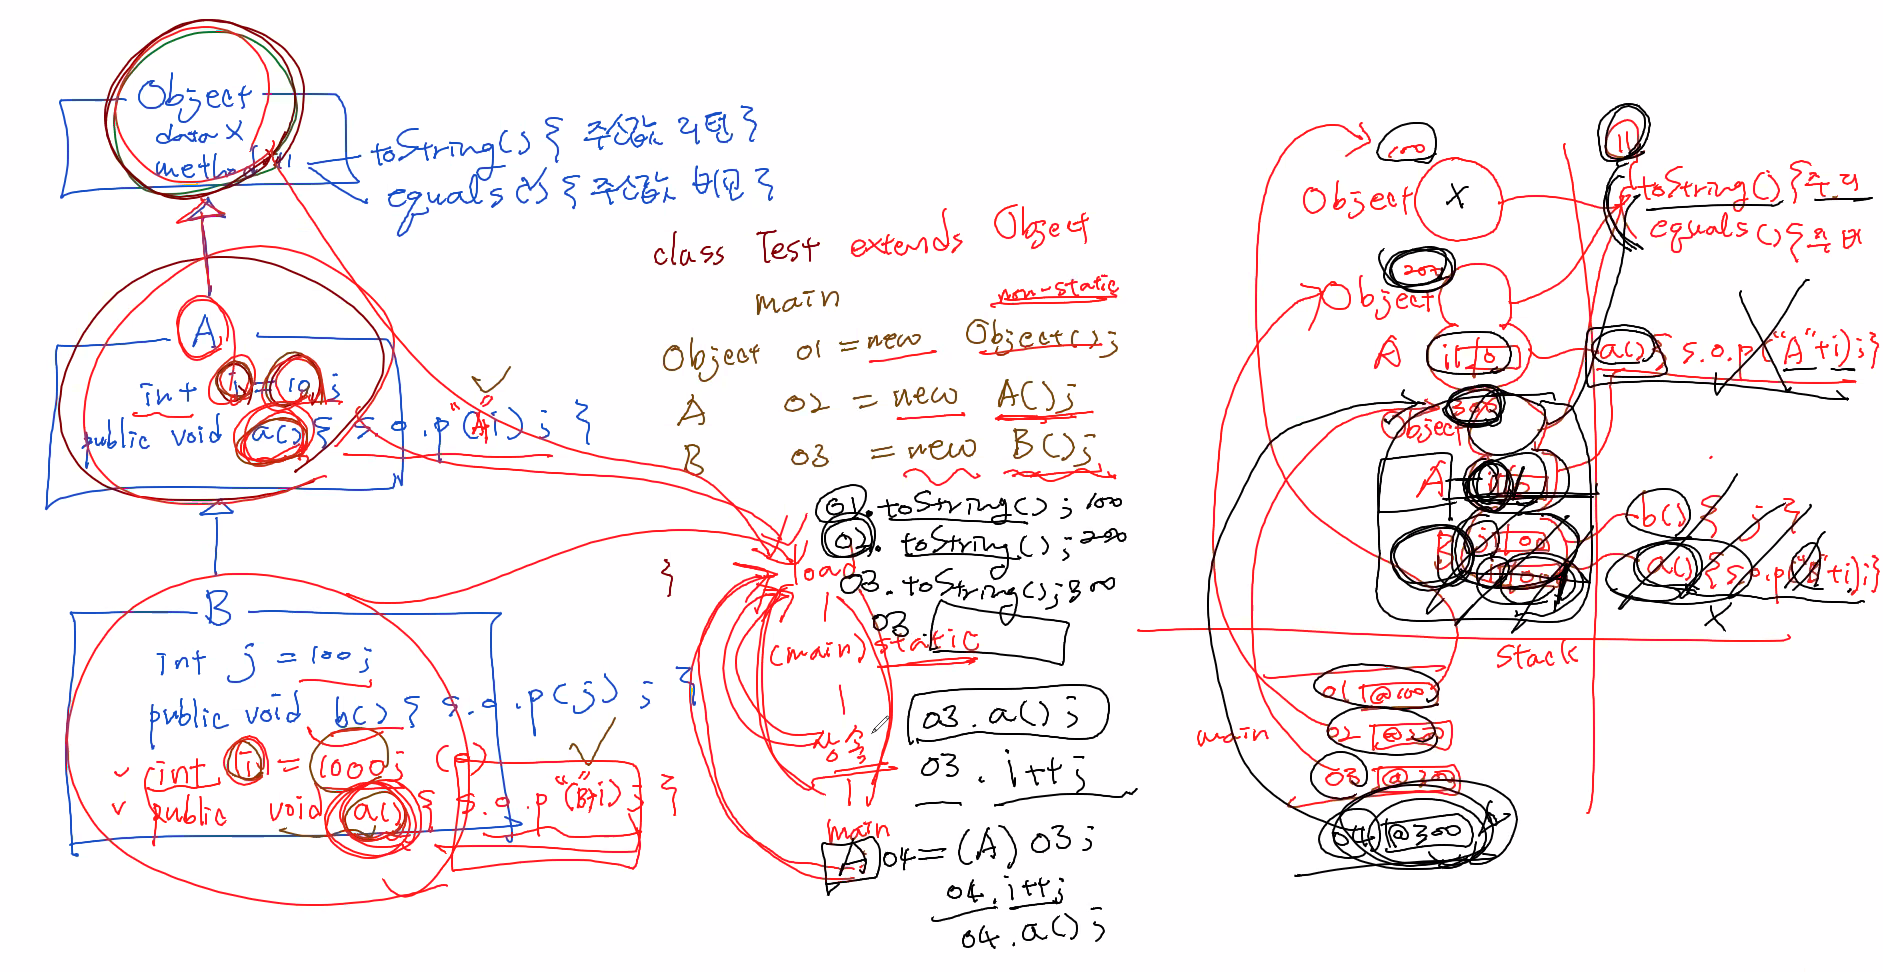 Object
data X
method 11
toString() { 주소값 리턴 }
equals() { 주소값 비교 }
A
int i = 10;
public void a() { s.o.p("A"+i); }
B
int j = 100;
public void b() { s.o.p(j); }
int i = 1000;
public void a() { s.o.p("B"+i); }
class Test extends Object
main
non-static
Object o1 = new Object();
A o2 = new A();
B o3 = new B();
o1.toString(); 100
o2.toString(); 200
o3.toString(); 300
}
load
o3
(main) static
상속
o3.a();
o3.i++;
main
A o4 = (A) o3;
o4.i++;
o4.a();
100
11
Object X
toString() { 주 리
equals() { 주 비
200
Object
A i 10
a() { s.o.p("A"+i); }
300
Object
A i
b() { j }
B j 100
a() { s.o.p("B"+i); }
stack
main
o1 @100
o2 @200
o3 @300
o4 @300